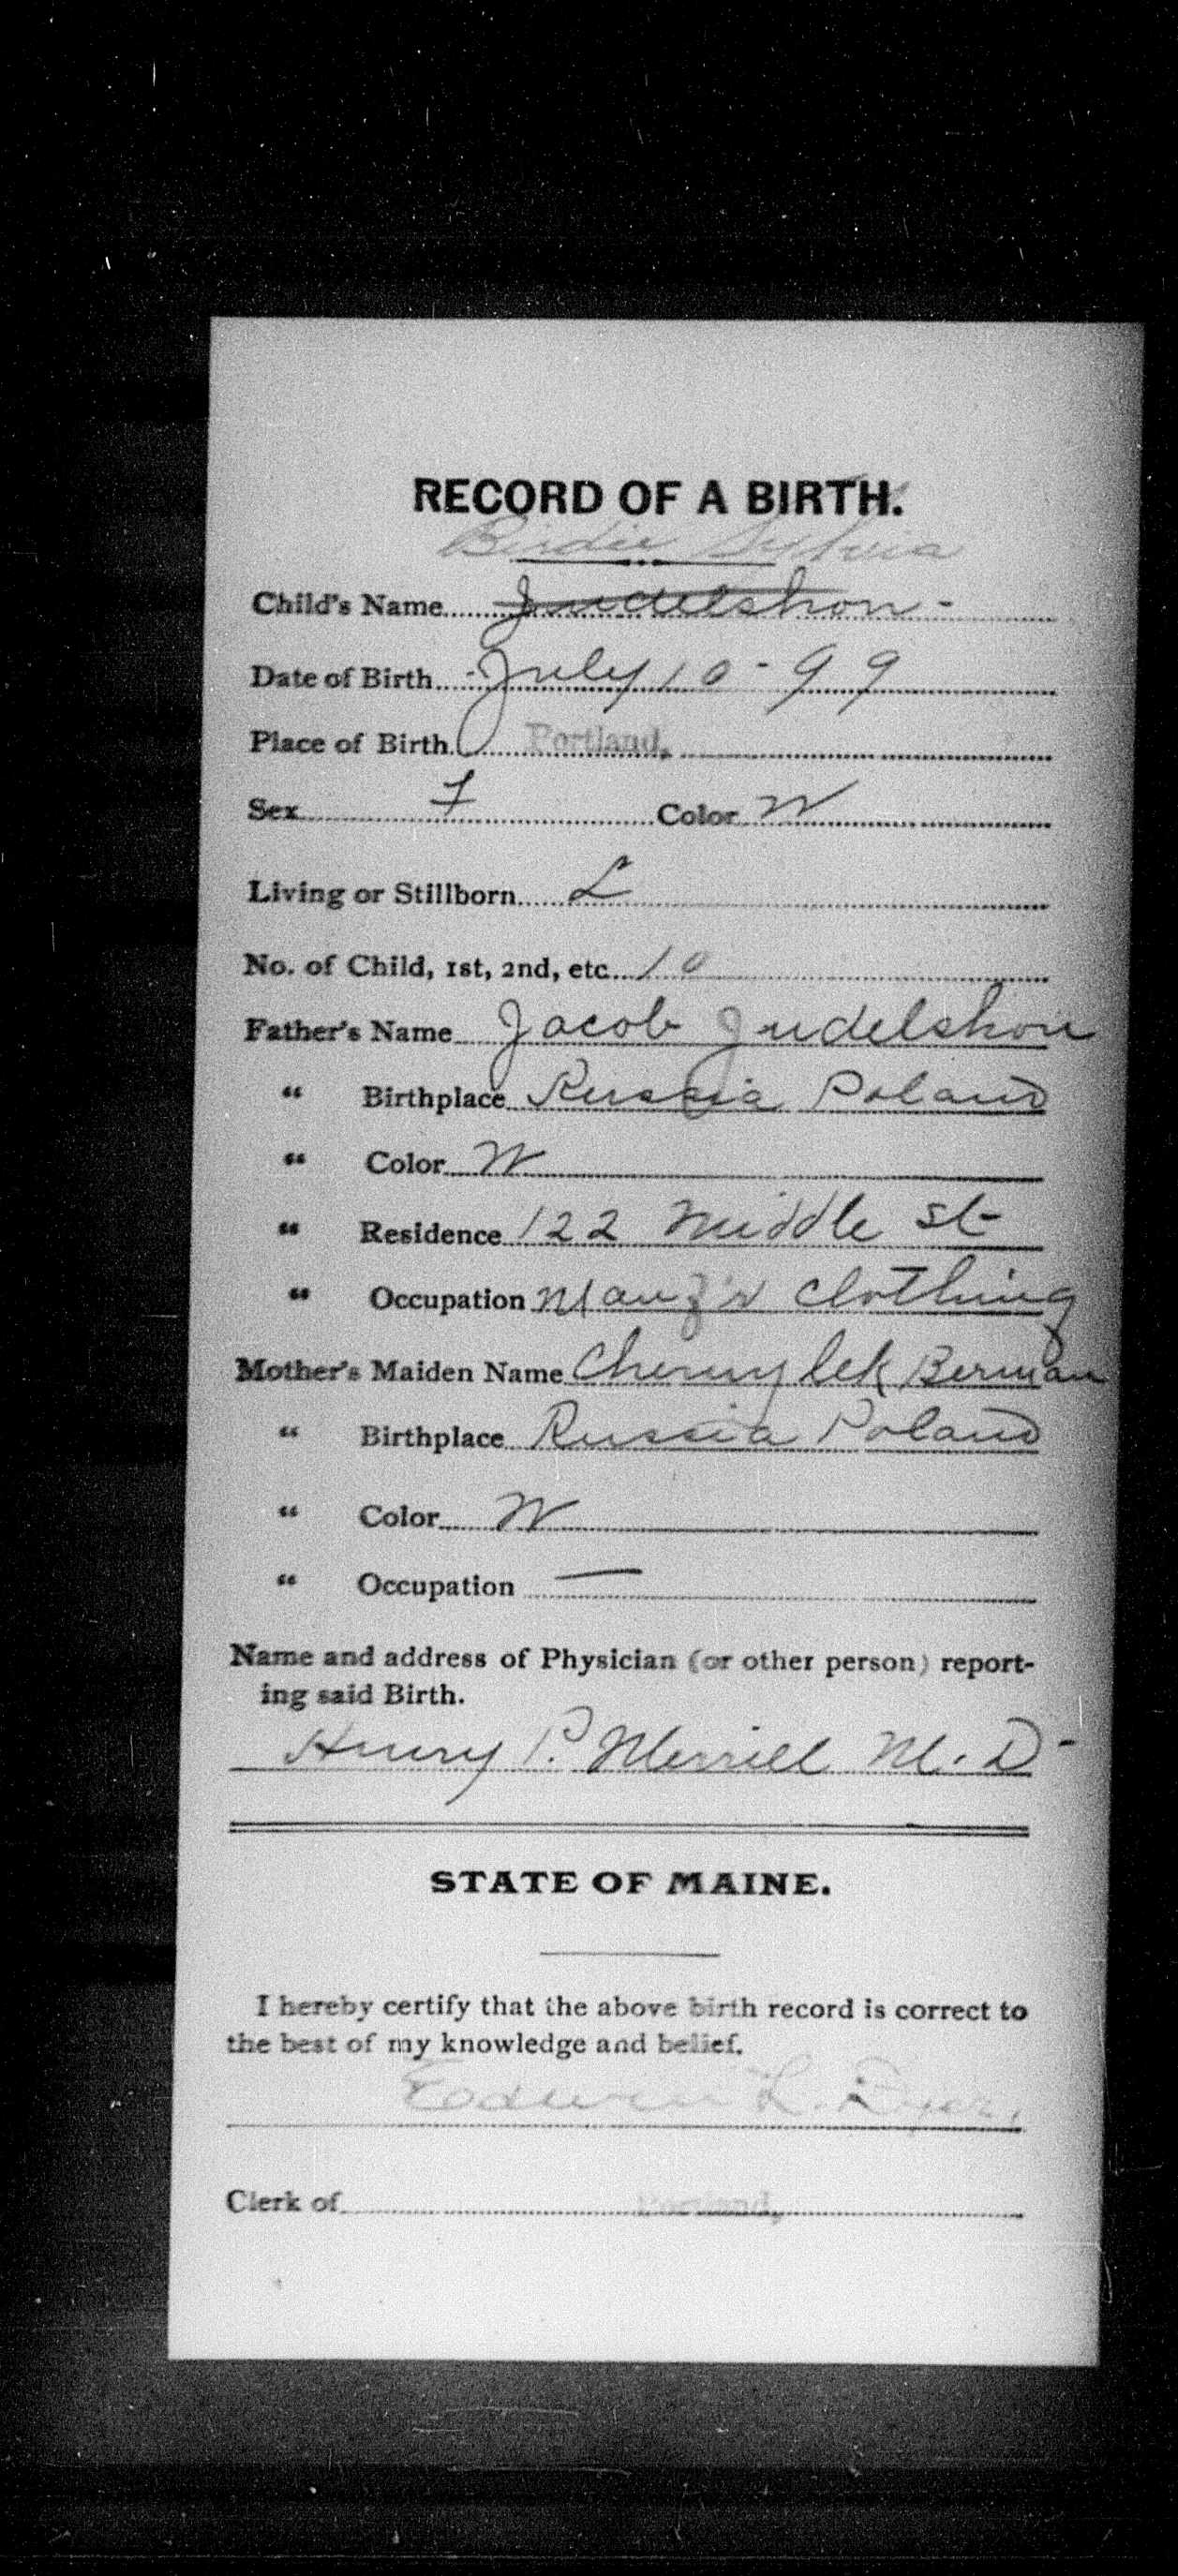 RECORD OF A BIRTH.
Birdie Sylvia
Child's Name Judelshon -
Date of Birth July 10 - 99
Place of Birth Portland,
Sex F Color W
Living or Stillborn L
No. of Child, 1st, 2nd, etc. 10
Father's Name Jacob Judelshon
" Birthplace Russia Poland
" Color W
" Residence 122 Middle St
" Occupation Manf'r Clothing
Mother's Maiden Name Berman
" Birthplace Russia Poland
" Color W
" Occupation —
Name and address of Physician (or other person) report-
ing said Birth.
Henry P. Merrill M. D
STATE OF MAINE.
I hereby certify that the above birth record is correct to
the best of my knowledge and belief.
Edwin L. Dyer.
Clerk of Portland,